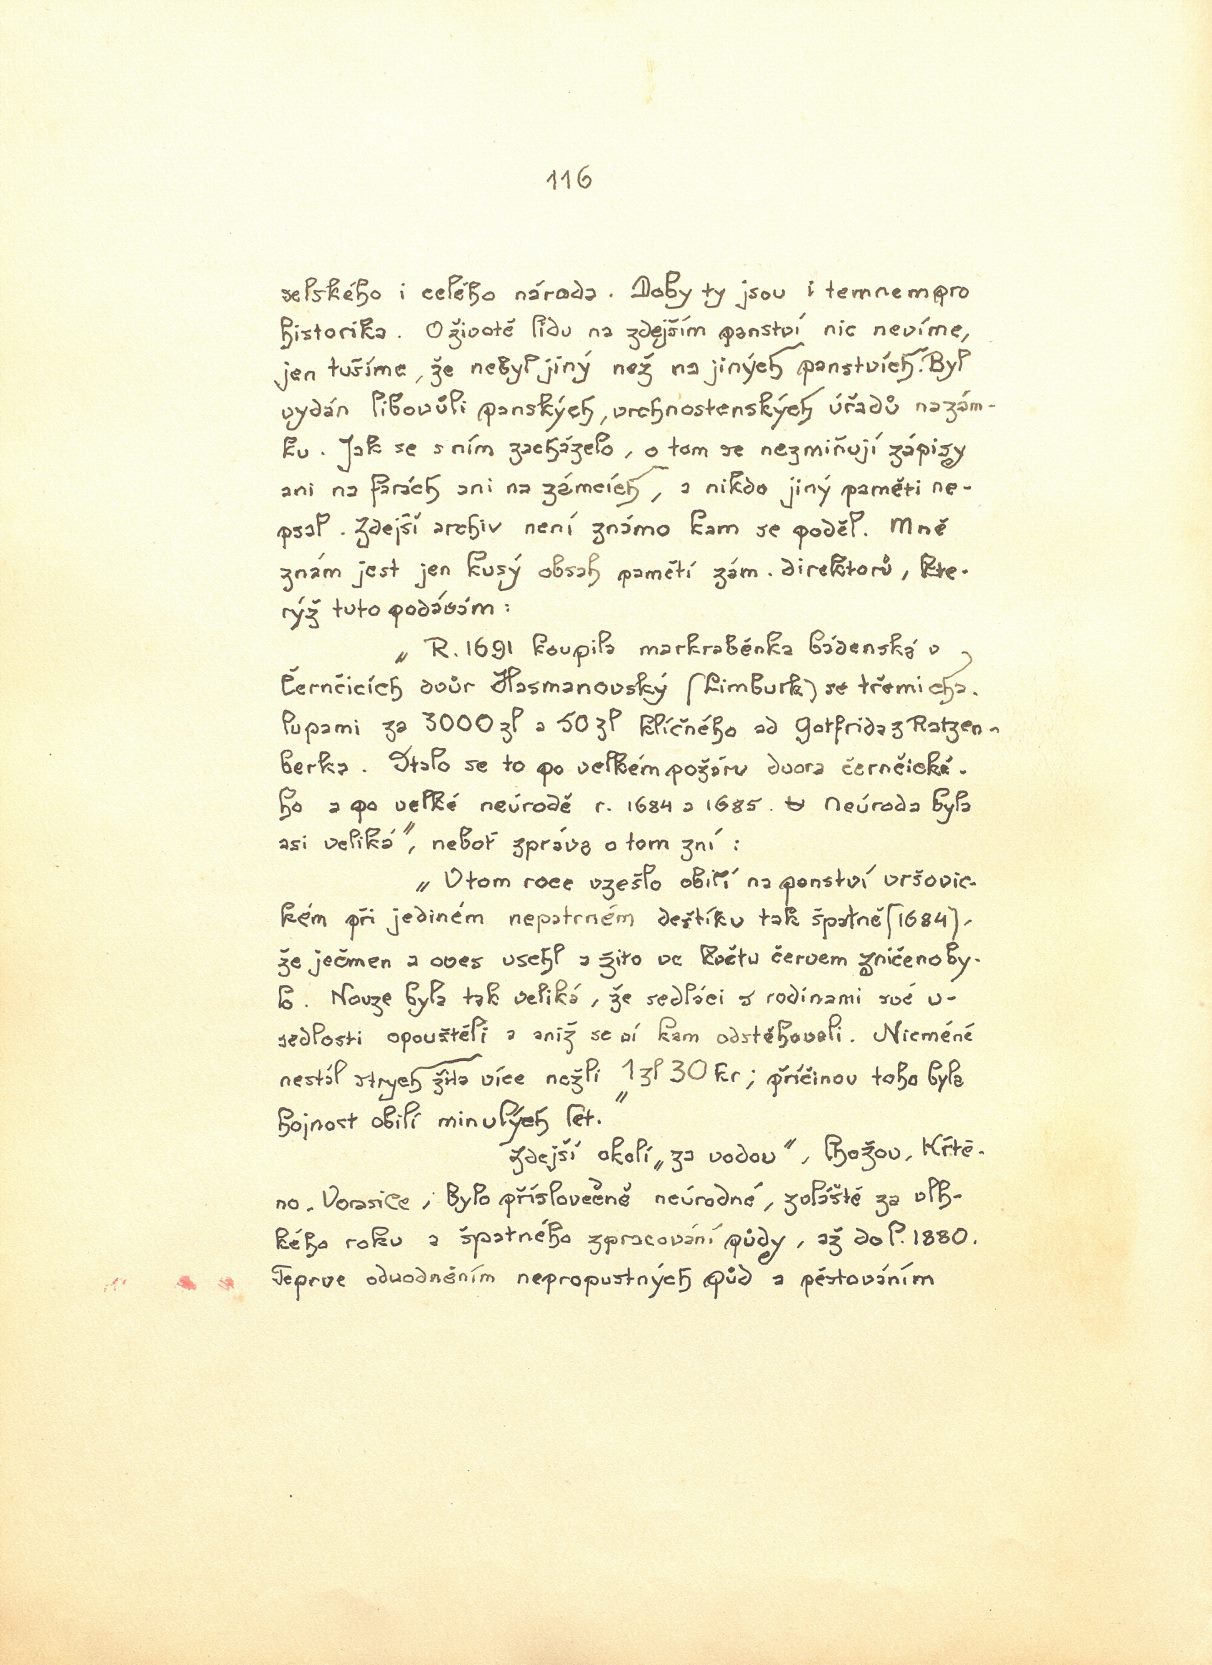 116
selského i celého národa. Doby ty jsou i temnem pro
historika. O životě lidu na zdejším panství nic nevíme,
jen tušíme, že nebyl jiný než na jiných panstvích. Byl
vydán libovůli panských, vrchnostenských úřadů na zám-
ku. Jak se s ním zacházelo, o tom se nezmiňují zápisy
ani na farách ani na zámcích, a nikdo jiný paměti ne-
psal. Zdejší archiv není známo kam se poděl. Mně
znám jest jen kusý obsah pamětí zám. direktorů, kte-
rýž tuto podávám:
„R. 1691 koupila markraběnka bádenská v
Černčicích dvůr Hasmanovský (Limburk) se třemi cha-
lupami za 3000 zl a 50 zl klíčného od Gotfrida z Ratzen-
berka. Stalo se to po velkém požáru dvora černčické-
ho a po velké neúrodě r. 1684 a 1685. Neúroda byla
asi veliká", neboť zpráva o tom zní:
„V tom roce vzešlo obilí na panství vršovic-
kém při jediném nepatrném deštíku tak špatně (1684),
že ječmen a oves uschl a žito ve květu červem zničeno by-
lo. Nouze byla tak veliká, že sedláci s rodinami své u-
sedlosti opouštěli a aniž se ví kam odstěhovali. Nicméně
nestál strych žita více nežli 1 zl 30 kr; příčinou toho byla
hojnost obilí minulých let."
Zdejší okolí „za vodou", Lhožou, Křtě-
no, Vorasice, bylo příslovečně neúrodné, zvláště za vlh-
kého roku a špatného zpracování půdy, až do l. 1880.
Teprve odvodněním nepropustných půd a pěstováním